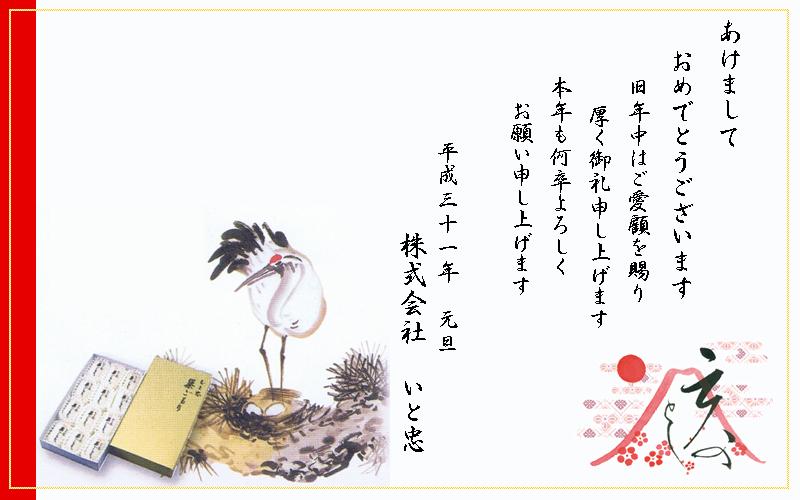 あけまして
おめでとうございます
旧年中はご愛顧を賜り
厚く御礼申し上げます
本年も何卒よろしく
お願い申し上げます
平成三十一年 元旦
株式会社 いと忠
巣ごもり